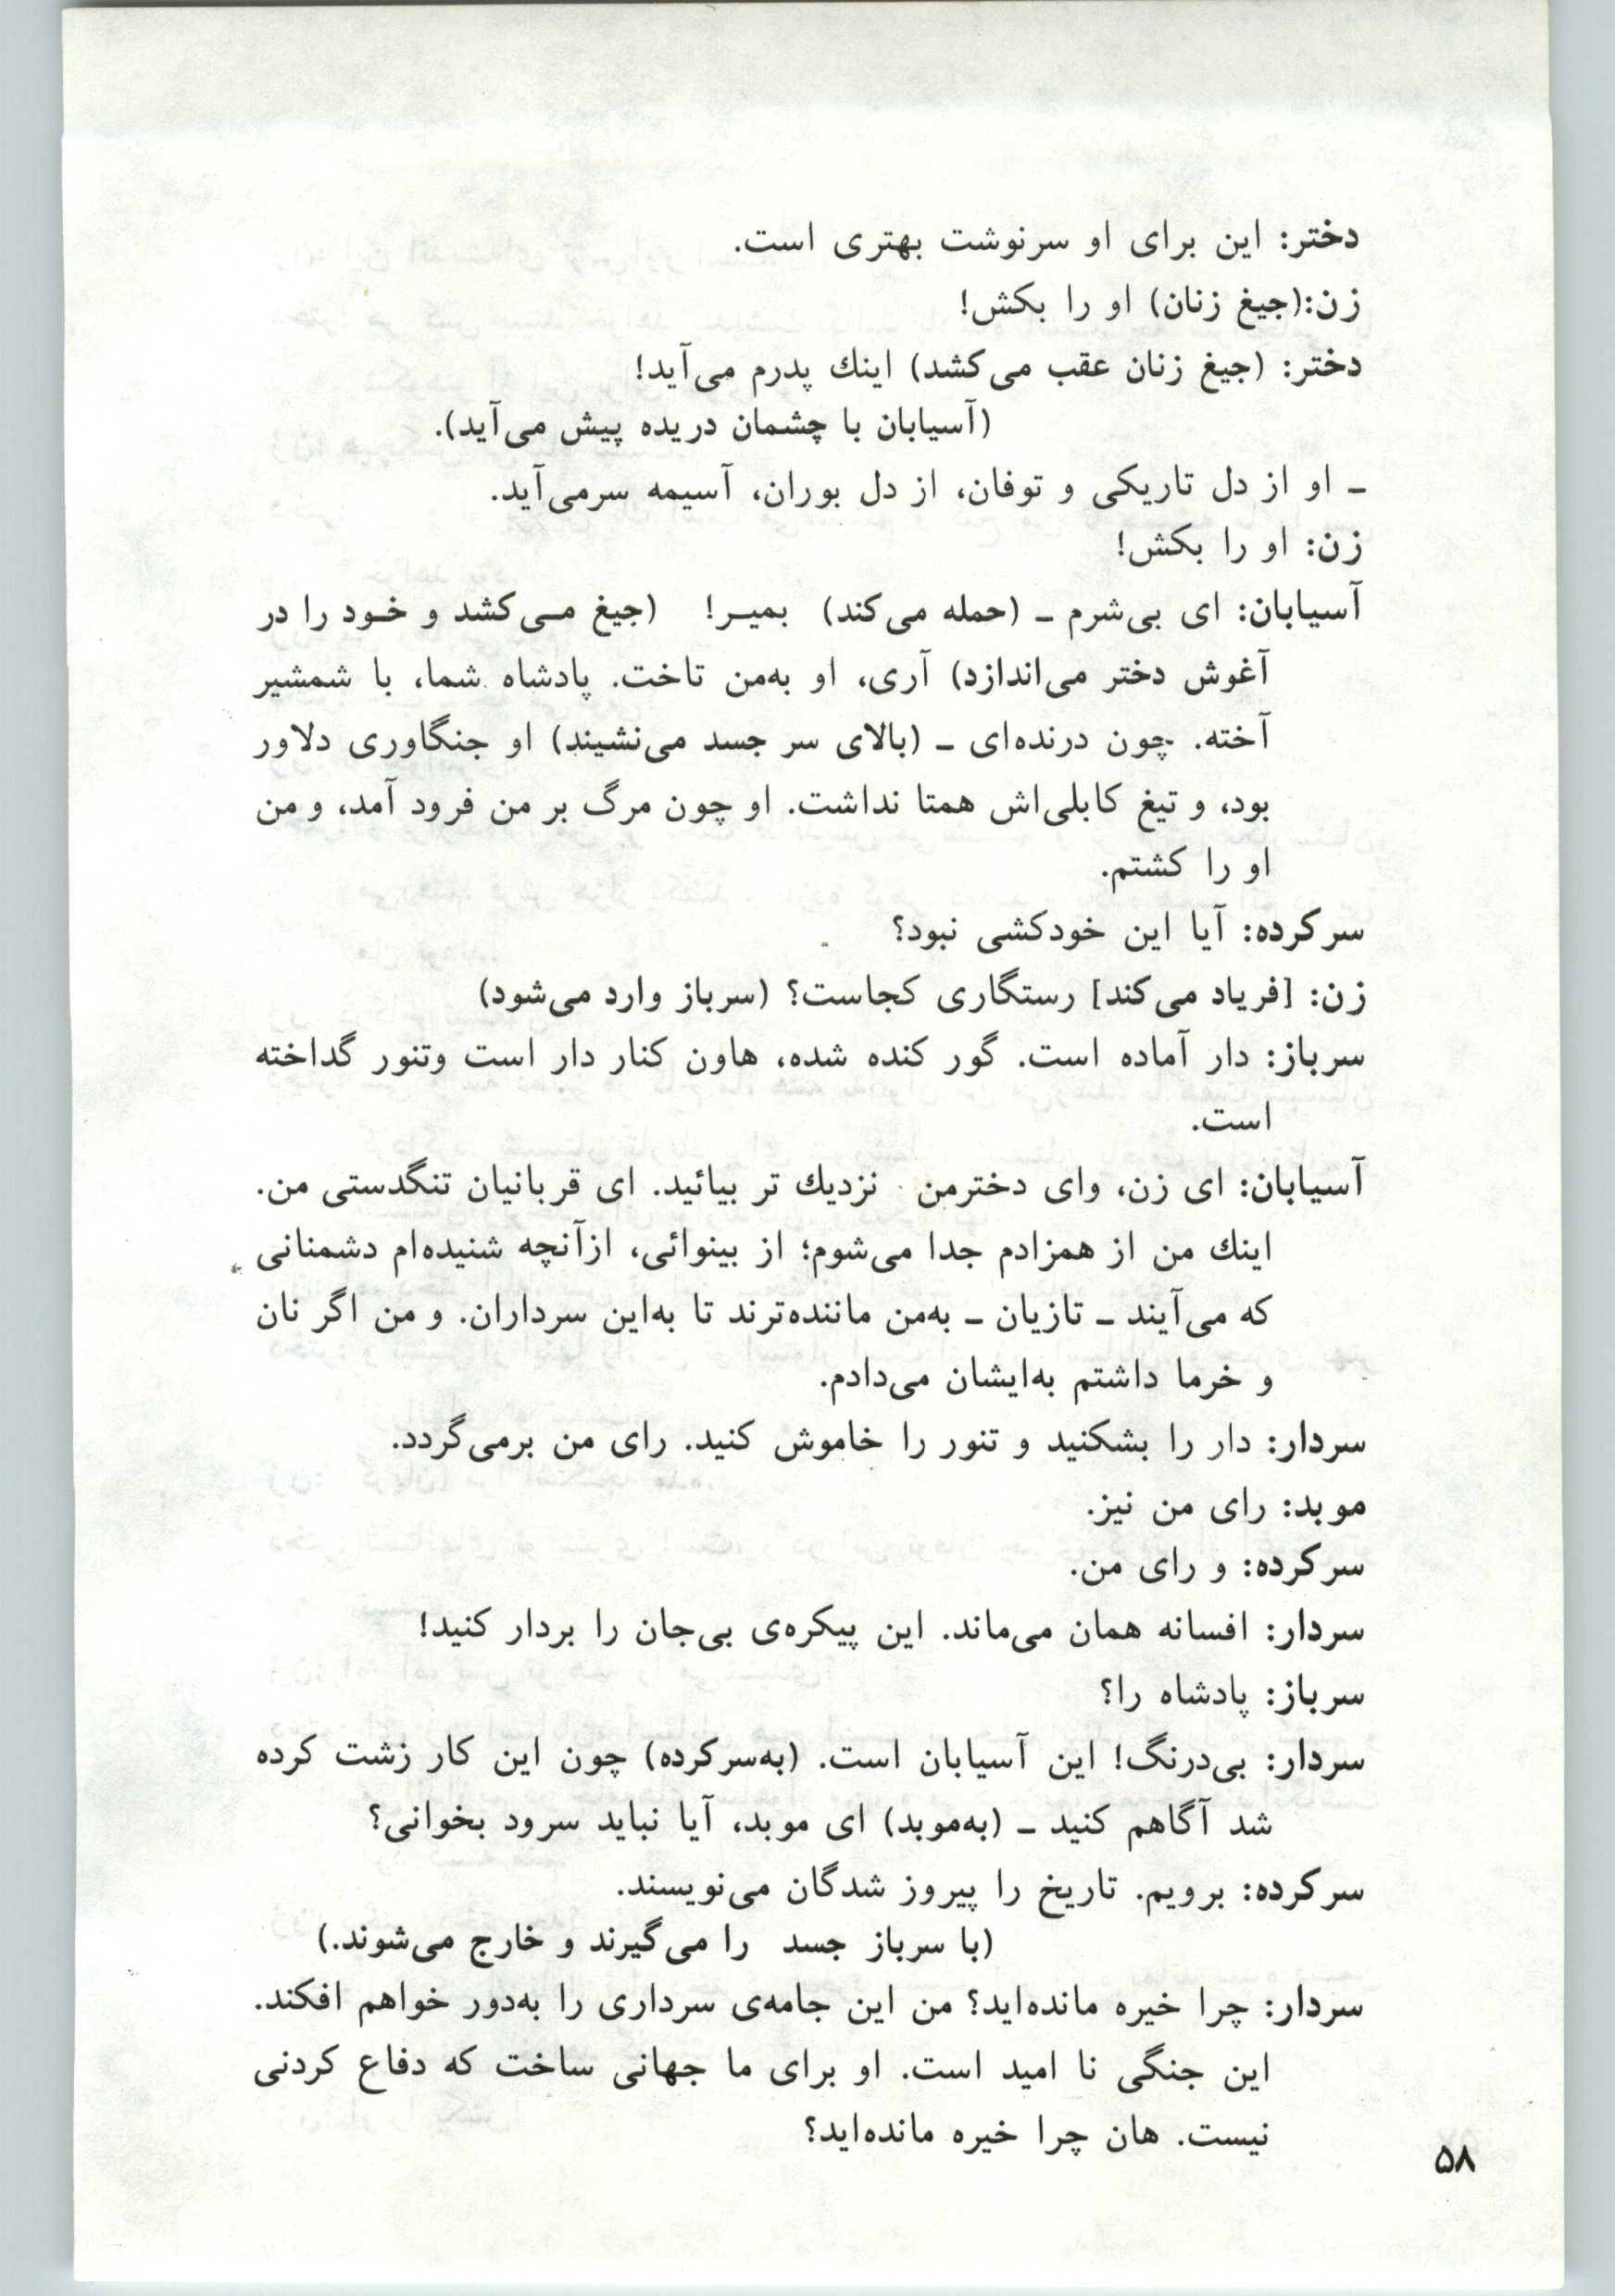 دختر: این برای او سرنوشت بهتری است.
زن:(جیغ زنان) او را بکش!
دختر: (جیغ زنان عقب می‌کشد) اینك پدرم می‌آید!
(آسیابان با چشمان دریده پیش می‌آید).
ـ او از دل تاریکی و توفان، از دل بوران، آسیمه سرمی‌آید.
زن: او را بکش!
آسیابان: ای بی‌شرم ـ (حمله می‌کند) بمیـر! (جیغ مـی‌کشد و خـود را در
آغوش دختر می‌اندازد) آری، او به‌من تاخت. پادشاه شما، با شمشیر
آخته. چون درنده‌ای ـ (بالای سر جسد می‌نشیند) او جنگاوری دلاور
بود، و تیغ کابلی‌اش همتا نداشت. او چون مرگ بر من فرود آمد، و من
او را کشتم.
سرکرده: آیا این خودکشی نبود؟
زن: [فریاد می‌کند] رستگاری کجاست؟ (سرباز وارد می‌شود)
سرباز: دار آماده است. گور کنده شده، هاون کنار دار است وتنور گداخته
است.
آسیابان: ای زن، وای دخترمن نزدیك تر بیائید. ای قربانیان تنگدستی من.
اینك من از همزادم جدا می‌شوم؛ از بینوائی، ازآنچه شنیده‌ام دشمنانی
که می‌آیند ـ تازیان ـ به‌من ماننده‌ترند تا به‌این سرداران. و من اگر نان
و خرما داشتم به‌ایشان می‌دادم.
سردار: دار را بشکنید و تنور را خاموش کنید. رای من برمی‌گردد.
موبد: رای من نیز.
سرکرده: و رای من.
سردار: افسانه همان می‌ماند. این پیکره‌ی بی‌جان را بردار کنید!
سرباز: پادشاه را؟
سردار: بی‌درنگ! این آسیابان است. (به‌سرکرده) چون این کار زشت کرده
شد آگاهم کنید ـ (به‌موبد) ای موبد، آیا نباید سرود بخوانی؟
سرکرده: برویم. تاریخ را پیروز شدگان می‌نویسند.
(با سرباز جسد را می‌گیرند و خارج می‌شوند.)
سردار: چرا خیره مانده‌اید؟ من این جامه‌ی سرداری را به‌دور خواهم افکند.
این جنگی نا امید است. او برای ما جهانی ساخت که دفاع کردنی
نیست. هان چرا خیره مانده‌اید؟
۵۸